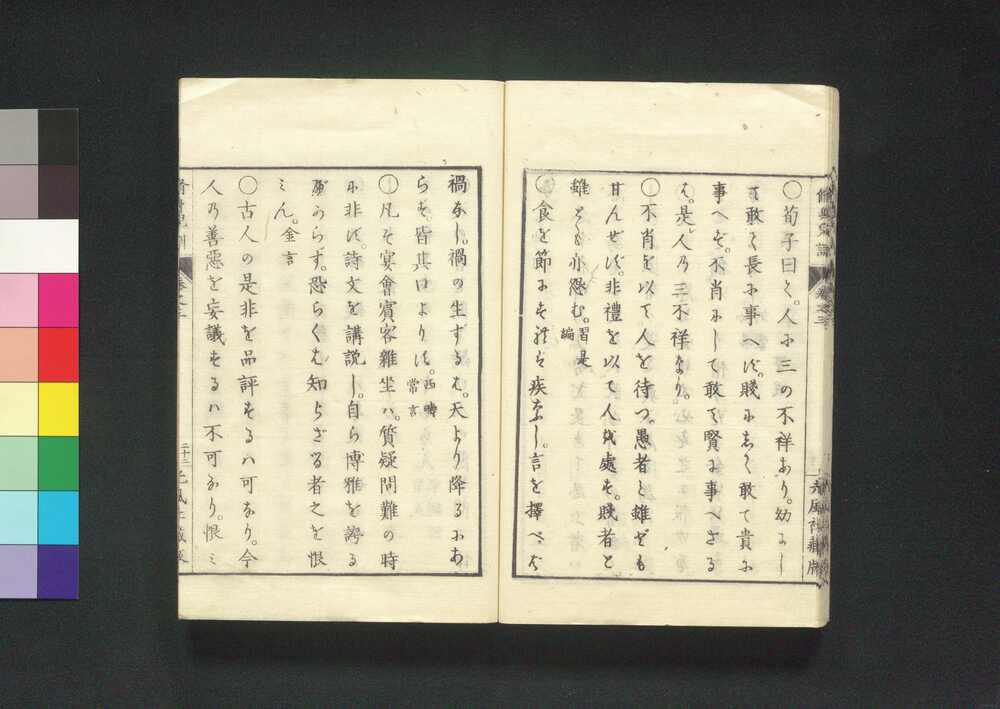 〇荀子曰く。人に三の不祥あり。幼にし
て敢て長に事へず。賤にして敢て貴に
事へず。不肖にして敢て賢に事へざる
は。是人乃三不祥なり。
〇不肖を以て人を待つ。愚者と雖ども
甘んせず。非禮を以て人を處す。賤者と
雖とも亦怨む。習是
編
〇食を節にすれば疾なし。言を擇べば
禍なし。禍の生ずるは。天より降るにあ
らず。皆其口よりす。西疇
常言
〇凡そ宴會賓客雜坐ハ。質疑問難の時
に非ず。詩文を講説し。自ら博雅を誇る
べからず。恐らくは知らざる者之を恨
ミん。金言
〇古人の是非を品評するハ可なり。今
人乃善惡を妄議するハ不可なり。恨ミ
二十三